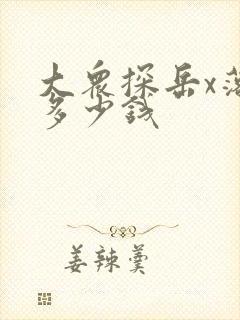 大众探岳x落
多少钱
姜辣羹